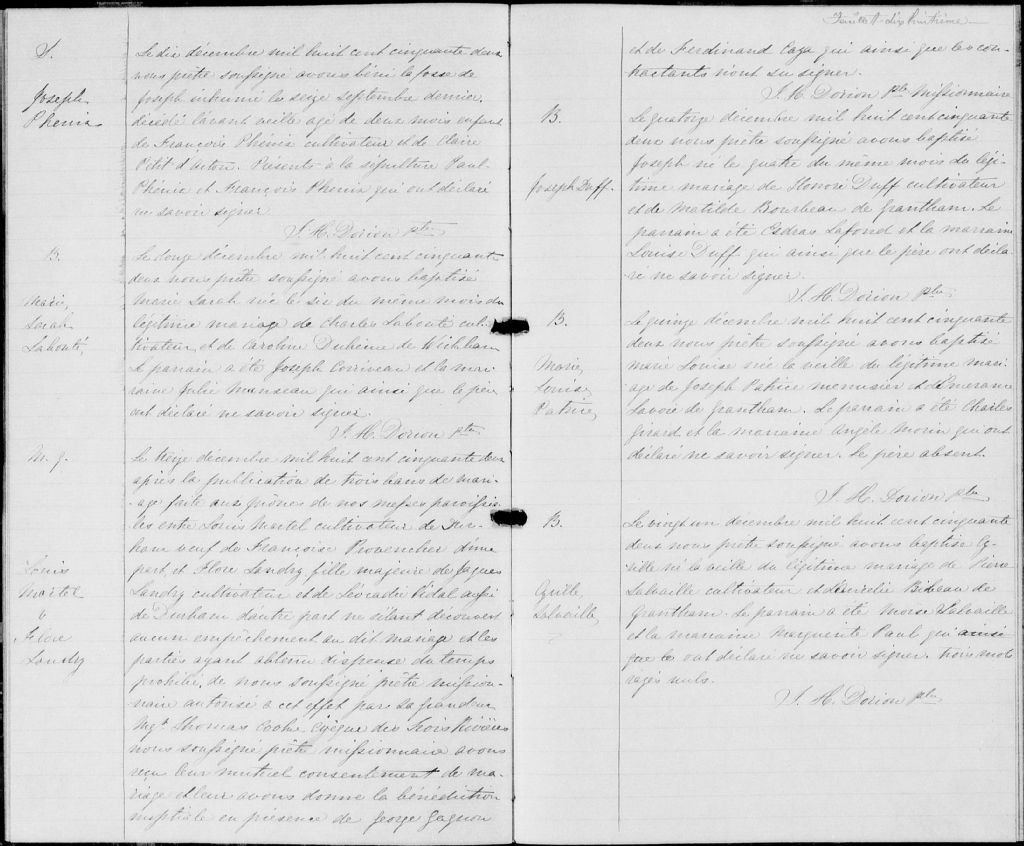 S.
Joseph
Phenix
Le dix décembre mil huit cent cinquante deux
nous prêtre soussigné avons béni la fosse de
Joseph inhumé le seize septembre dernier,
décédé l'avant veille agé de deux mois enfant
de François Phénix cultivateur et de Claire
Petit d'acton. Présents à la sépulture Paul
Phénix et François Phenix qui ont déclaré
ne savoir signer
J. H. Dorion Ptre
B.
Marie,
Sarah
Labonté,
Le douze décembre mil huit cent cinquante
deux nous prêtre soussigné avons baptisé
Marie Sarah née le six du même mois du
légitime mariage de Charles Labonté cul-
tivateur et de Caroline Duhême de Wickham
Le parrain a été Joseph Corriveau et la mar-
raine Julie Manseau qui ainsi que le père
ont déclaré ne savoir signer.
J. H. Dorion Ptre
M. 9.
Louis
Martel
&
Flore
Landry
Le treize décembre mil huit cent cinquante deux
après la publication de trois bans de mari-
age faite aux prônes de nos messes paroissia-
les entre Louis Martel cultivateur de Dur-
ham veuf de Françoise Provencher d'une
part, et Flore Landry fille majeure de Jaques
Landry cultivateur et de Léocadie Vidal aussi
de Durham d'autre part ne s'étant découvert
aucun empêchement au dit mariage et les
parties ayant obtenu dispense du temps
prohibé, de nous soussigné prêtre mission-
naire autorisé à cet effet par Sa Grandeur
Mgr. Thomas Cooke Evêque des Trois Rivières
nous soussigné prêtre missionnaire avons
reçu leur mutuel consentement de ma-
riage et leur avons donné la bénédiction
nuptiale en présence de George Gagnon
Feuillet dix huitième
et de Ferdinand Caza qui ainsi que les con-
tractants n'ont su signer.
J. H. Dorion Ptre Missionnaire
B.
Joseph Duff.
Le quatorze décembre mil huit cent cinquante
deux nous prêtre soussigné avons baptisé
Joseph né le quatre du même mois du légi-
time mariage de Honoré Duff cultivateur
et de Matilde Bourbeau de Grantham. Le
parrain a été Esdras Lafond et la marraine
Louise Duff qui ainsi que le père ont décla-
ré ne savoir signer.
J. H. Dorion Ptre
B.
Marie,
Louise,
Patrice,
Le quinze décembre mil huit cent cinquante
deux nous prêtre soussigné avons baptisé
Marie Louise née la veille du légitime mari-
age de Joseph Patrice menusier et d'Emerance
Savoie de Grantham. Le parrain a été Charles
Girard et la marraine Angèle Morin qui ont
déclaré ne savoir signer. Le père absent.
J. H. Dorion Ptre
B.
Salvaille,
Le vingt un décembre mil huit cent cinquante
deux nous prêtre soussigné avons baptisé
né la veille du légitime mariage de Pierre
Salvaille cultivateur et d'Aurélie de
Grantham. Le parrain a été Moise Salvaille
et la marraine Marguerite Paul qui ainsi
que le ont déclaré ne savoir signer. trois mots
rayés nuls.
J. H. Dorion Ptre